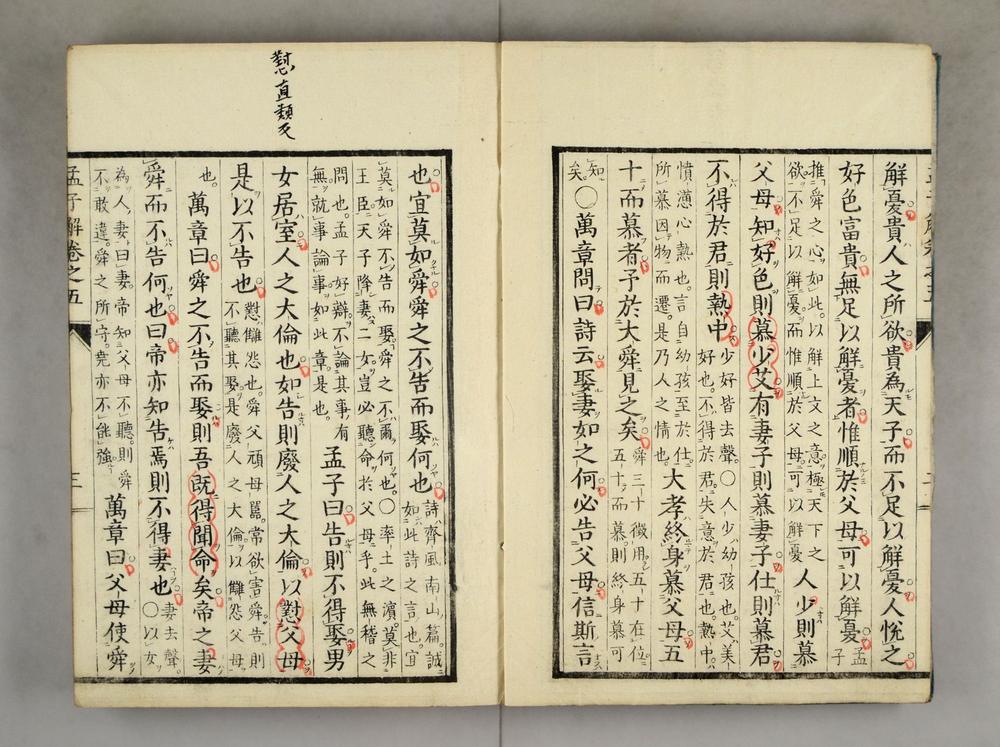 解憂貴人之所欲貴為天子而不足以解憂人悅之
好色富貴無足以解憂者惟順於父母可以解憂孟子
推舜之心如此。以解上文之意極天下之
欲不足以解憂而惟順於父母可以解憂
人少則慕
父母知好色則慕少艾有妻子則慕妻子仕則慕君
不得於君則熱中
少好皆去聲。〇人少幼孩也。艾美
好也。不得於君。失意於君也。熱中
憤懣心熱也。言自幼孩至於仕。
所慕因物而遷。是乃人之情也。
大孝終身慕父母五
十而慕者予於大舜見之矣
舜三十徵用。五十在位。
五十而慕。則終身慕可
知矣。
〇萬章問曰詩云娶妻如之何必告父母信斯言
懟直類反
也宜莫如舜舜之不告而娶何也
詩齊風南山篇。誠
如此詩之言也。宜
莫如舜不告而娶。舜之不爾何也。〇率土之濱。莫非
王臣。天子降妻二女。豈必聽命於父母乎。此無稽之
問也。孟子好辯。不論其事有
無。就事論事。如此章是也。
孟子曰告則不得娶男
女居室人之大倫也如告則廢人之大倫以懟父母
是以不告也
懟讎怨也。舜父頑母嚚。常欲害舜。告則
不聽其娶。是廢人之大倫。以讎怨父母
也。
萬章曰舜之不告而娶則吾既得聞命矣帝之妻
舜而不告何也曰帝亦知告焉則不得妻也
妻去聲。
〇以女
為人妻曰妻。帝知父母不聽。則舜
不敢違。舜之所守。堯亦不能強。
萬章曰父母使舜
孟子解卷之五
三